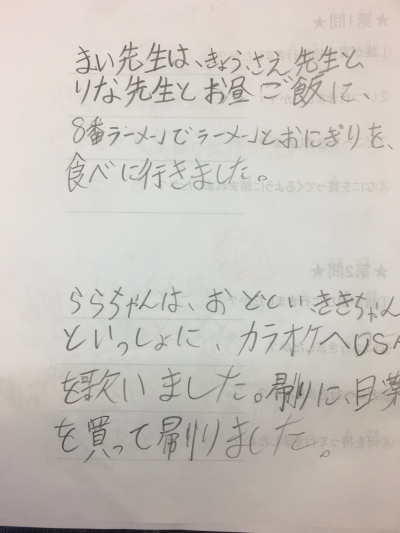 まい先生は、きょう、さえ先生と、
りな先生とお昼ご飯に、
8番ラーメンでラーメンとおにぎりを、
食べに行きました。
ららちゃんは、おとといききちゃん
といっしょに、カラオケへUSA
を歌いました。帰りに、目薬
を買って帰りました。